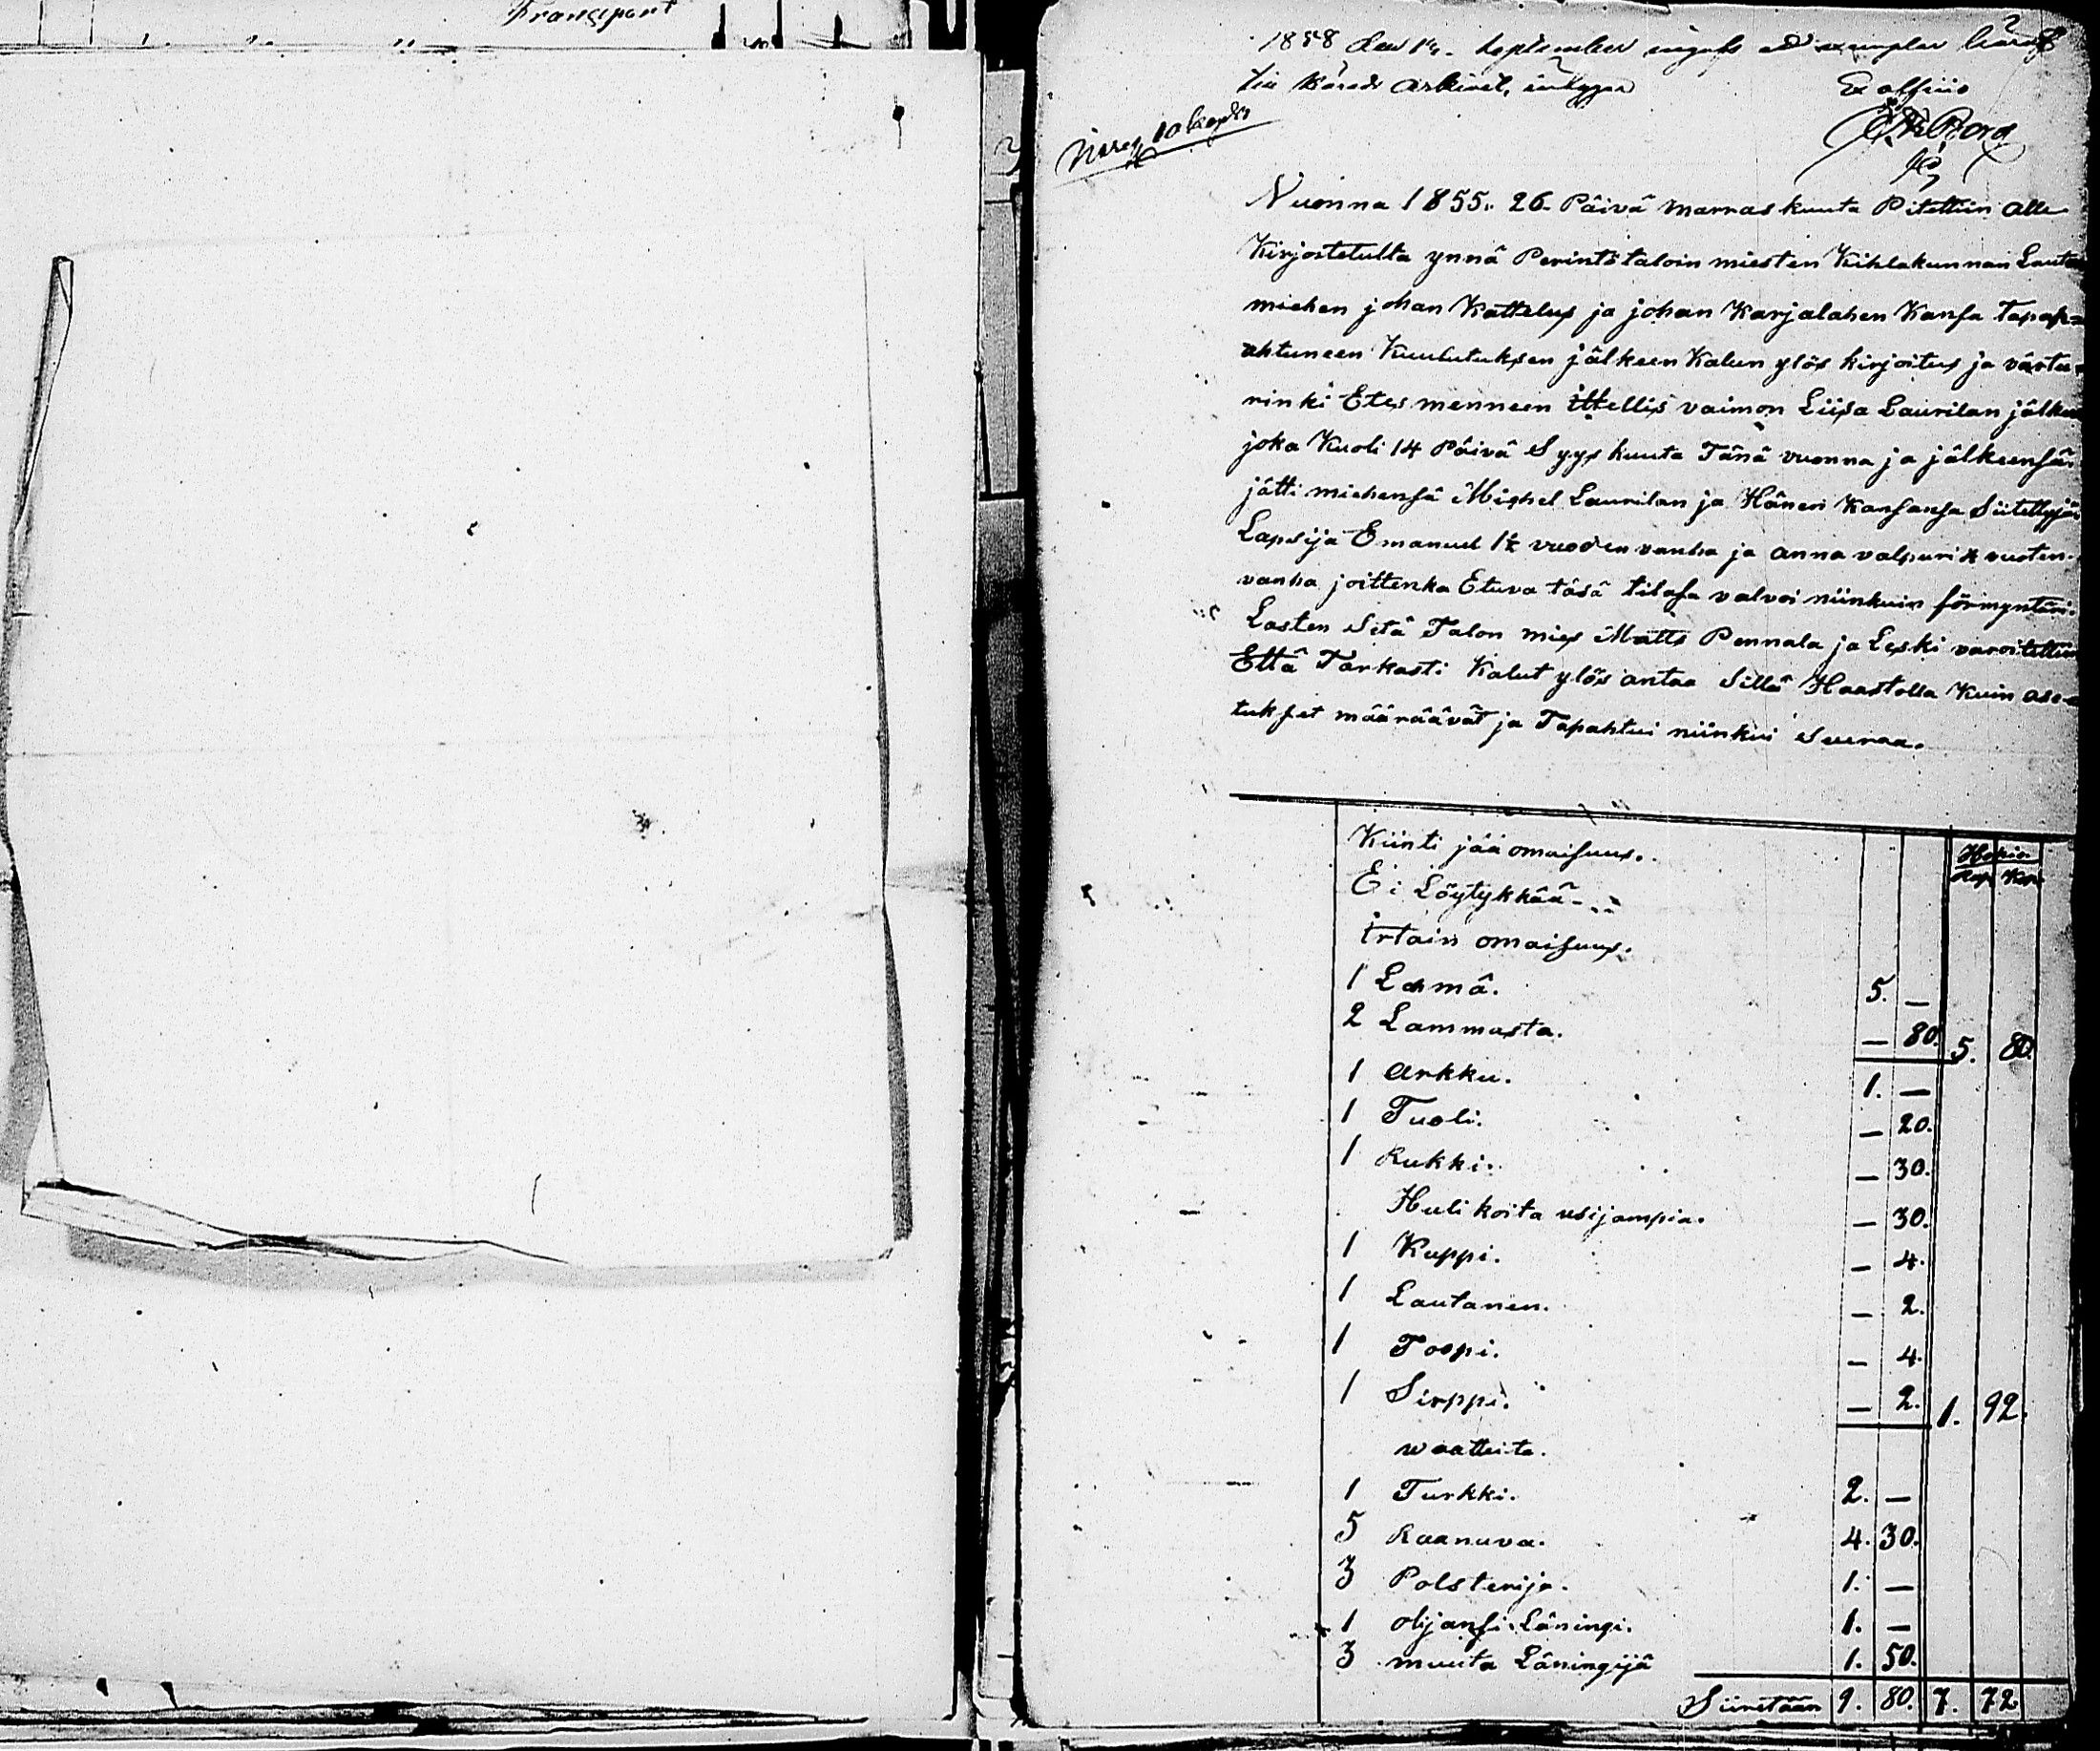 Transport
1858 den 14. September ingafs ad exemplar
Ex officio
Nuonna 1855. 26. Päivä marraskuuta Pitettiin alle
Kirjoitetulta ynnä Perintötaloin miesten Kihlakunnan Lauta
miehen johan Kattelus ja johan Karjalahen Kansa Tapap=
ahtuneen Kuulutuksen jälkeen Kalun ylös kirjoitus ja värtee=
rinki Etes menneen ittellis vaimon Liisa Laurilan jälkeen
joka Kuoli 14 Päivä Syys kuuta Tänä vuonna ja jälkeensä
jätti miehensä Mighel Laurilan ja Hänen Kansansa Siitettyjä
Lapsija Emanuel 1½ vuoden vanha ja anna valpuri vuoten
vanha joittenka Etuva täsä tilasa valvoi niinkuin förmyntäri
Lasten Setä Talon mies Matts Pennala ja Leski varoitettiin
Että Tarkasti Kalut ylös antaa Sillä Haastolla Kuin ase=
tukset määräävät ja Tapahtui niinkui Seuraa.
Kiinti jää omaisuus.
Hopia
Rup Kop
Ei Löytykkää
irtain omaisuus.
1 Lehmä. 5. —
2 Lammasta. — 80. 5. 80.
1 Arkku. 1. —
1 Tuoli. — 20.
1 Rukki. — 30.
Hulikoita usijampia. — 30.
1 Kuppi. — 4.
1 Lautanen. — 2.
1 Toopi. — 4.
1 Sirppi. — 2. 1. 92.
waatteita.
1 Turkki. 2. —
5 Raanuva. 4. 30.
3 Polsterija. 1. —
1 olijansi Läningi. 1. —
3 muuta Läningijä 1. 50.
Siiretään 9. 80. 7. 72.